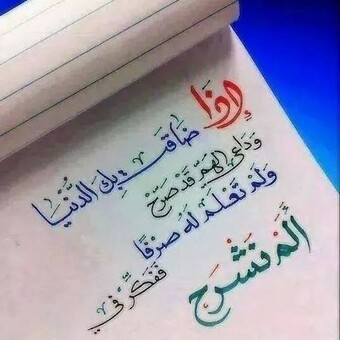 إِذَا ضَاقَتْ بِكَ الدُّنْيَا
وَدَاعِي الهَمِّ قَدْ صَرَّحْ
وَلَمْ تَعْلَمْ لَهُ صَرْفًا
فَفَكِّرْ فِي
أَلَمْ نَشْرَحْ